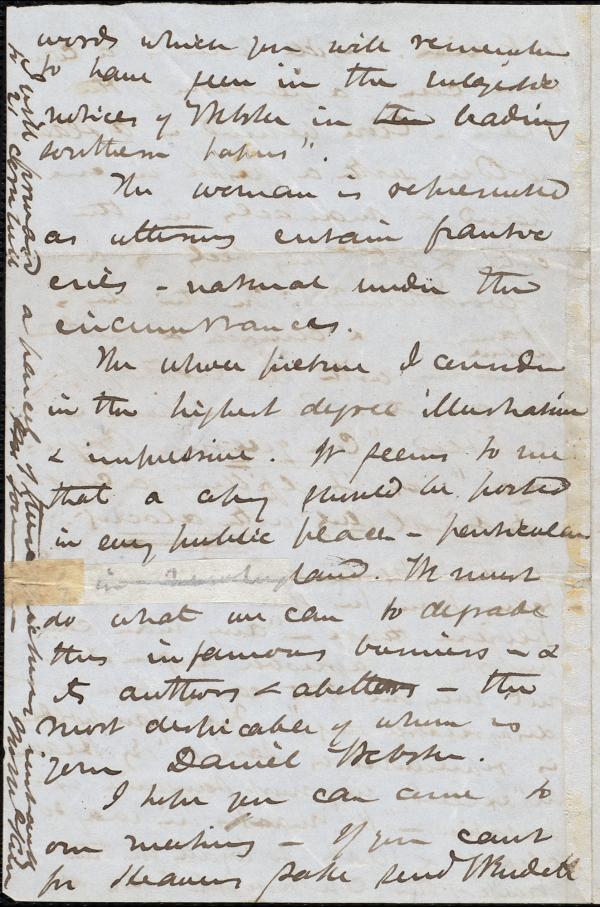 words which you will remember
to have seen in the eulogistic
notices of Webster in the leading
southern papers".
The woman is represented
as uttering certain frantic
cries - natural under the
circumstances.
The whole picture I consider
in the highest degree illustrative
& impressive. It seems to me
that a copy should be posted
in every public place - particular
in land. We must
do what we can to degrade
this infamous business - &
its authors & abettors - the
most despicable of whom is
your Daniel Webster.
I hope you can come to
our meeting - If you can't
for Heavens sake send Wendell
I will forward a parcel of these pictures
to